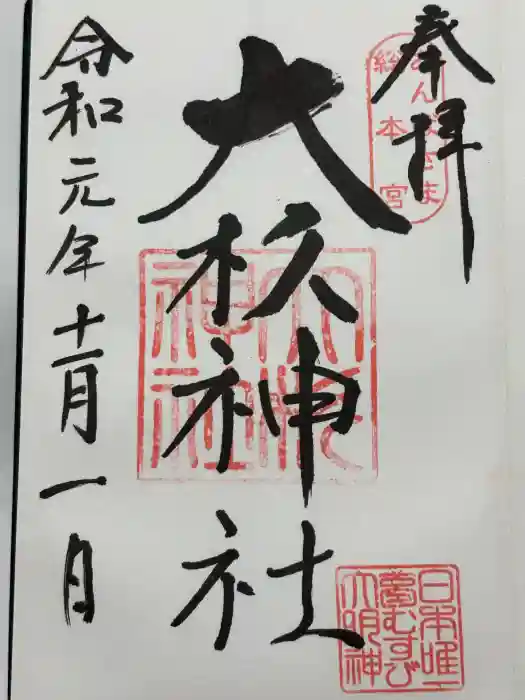 奉拝
あんばさま
総本宮
大杉神社
大杉神社
日本唯一
夢むすび
大明神
令和元年十一月一日